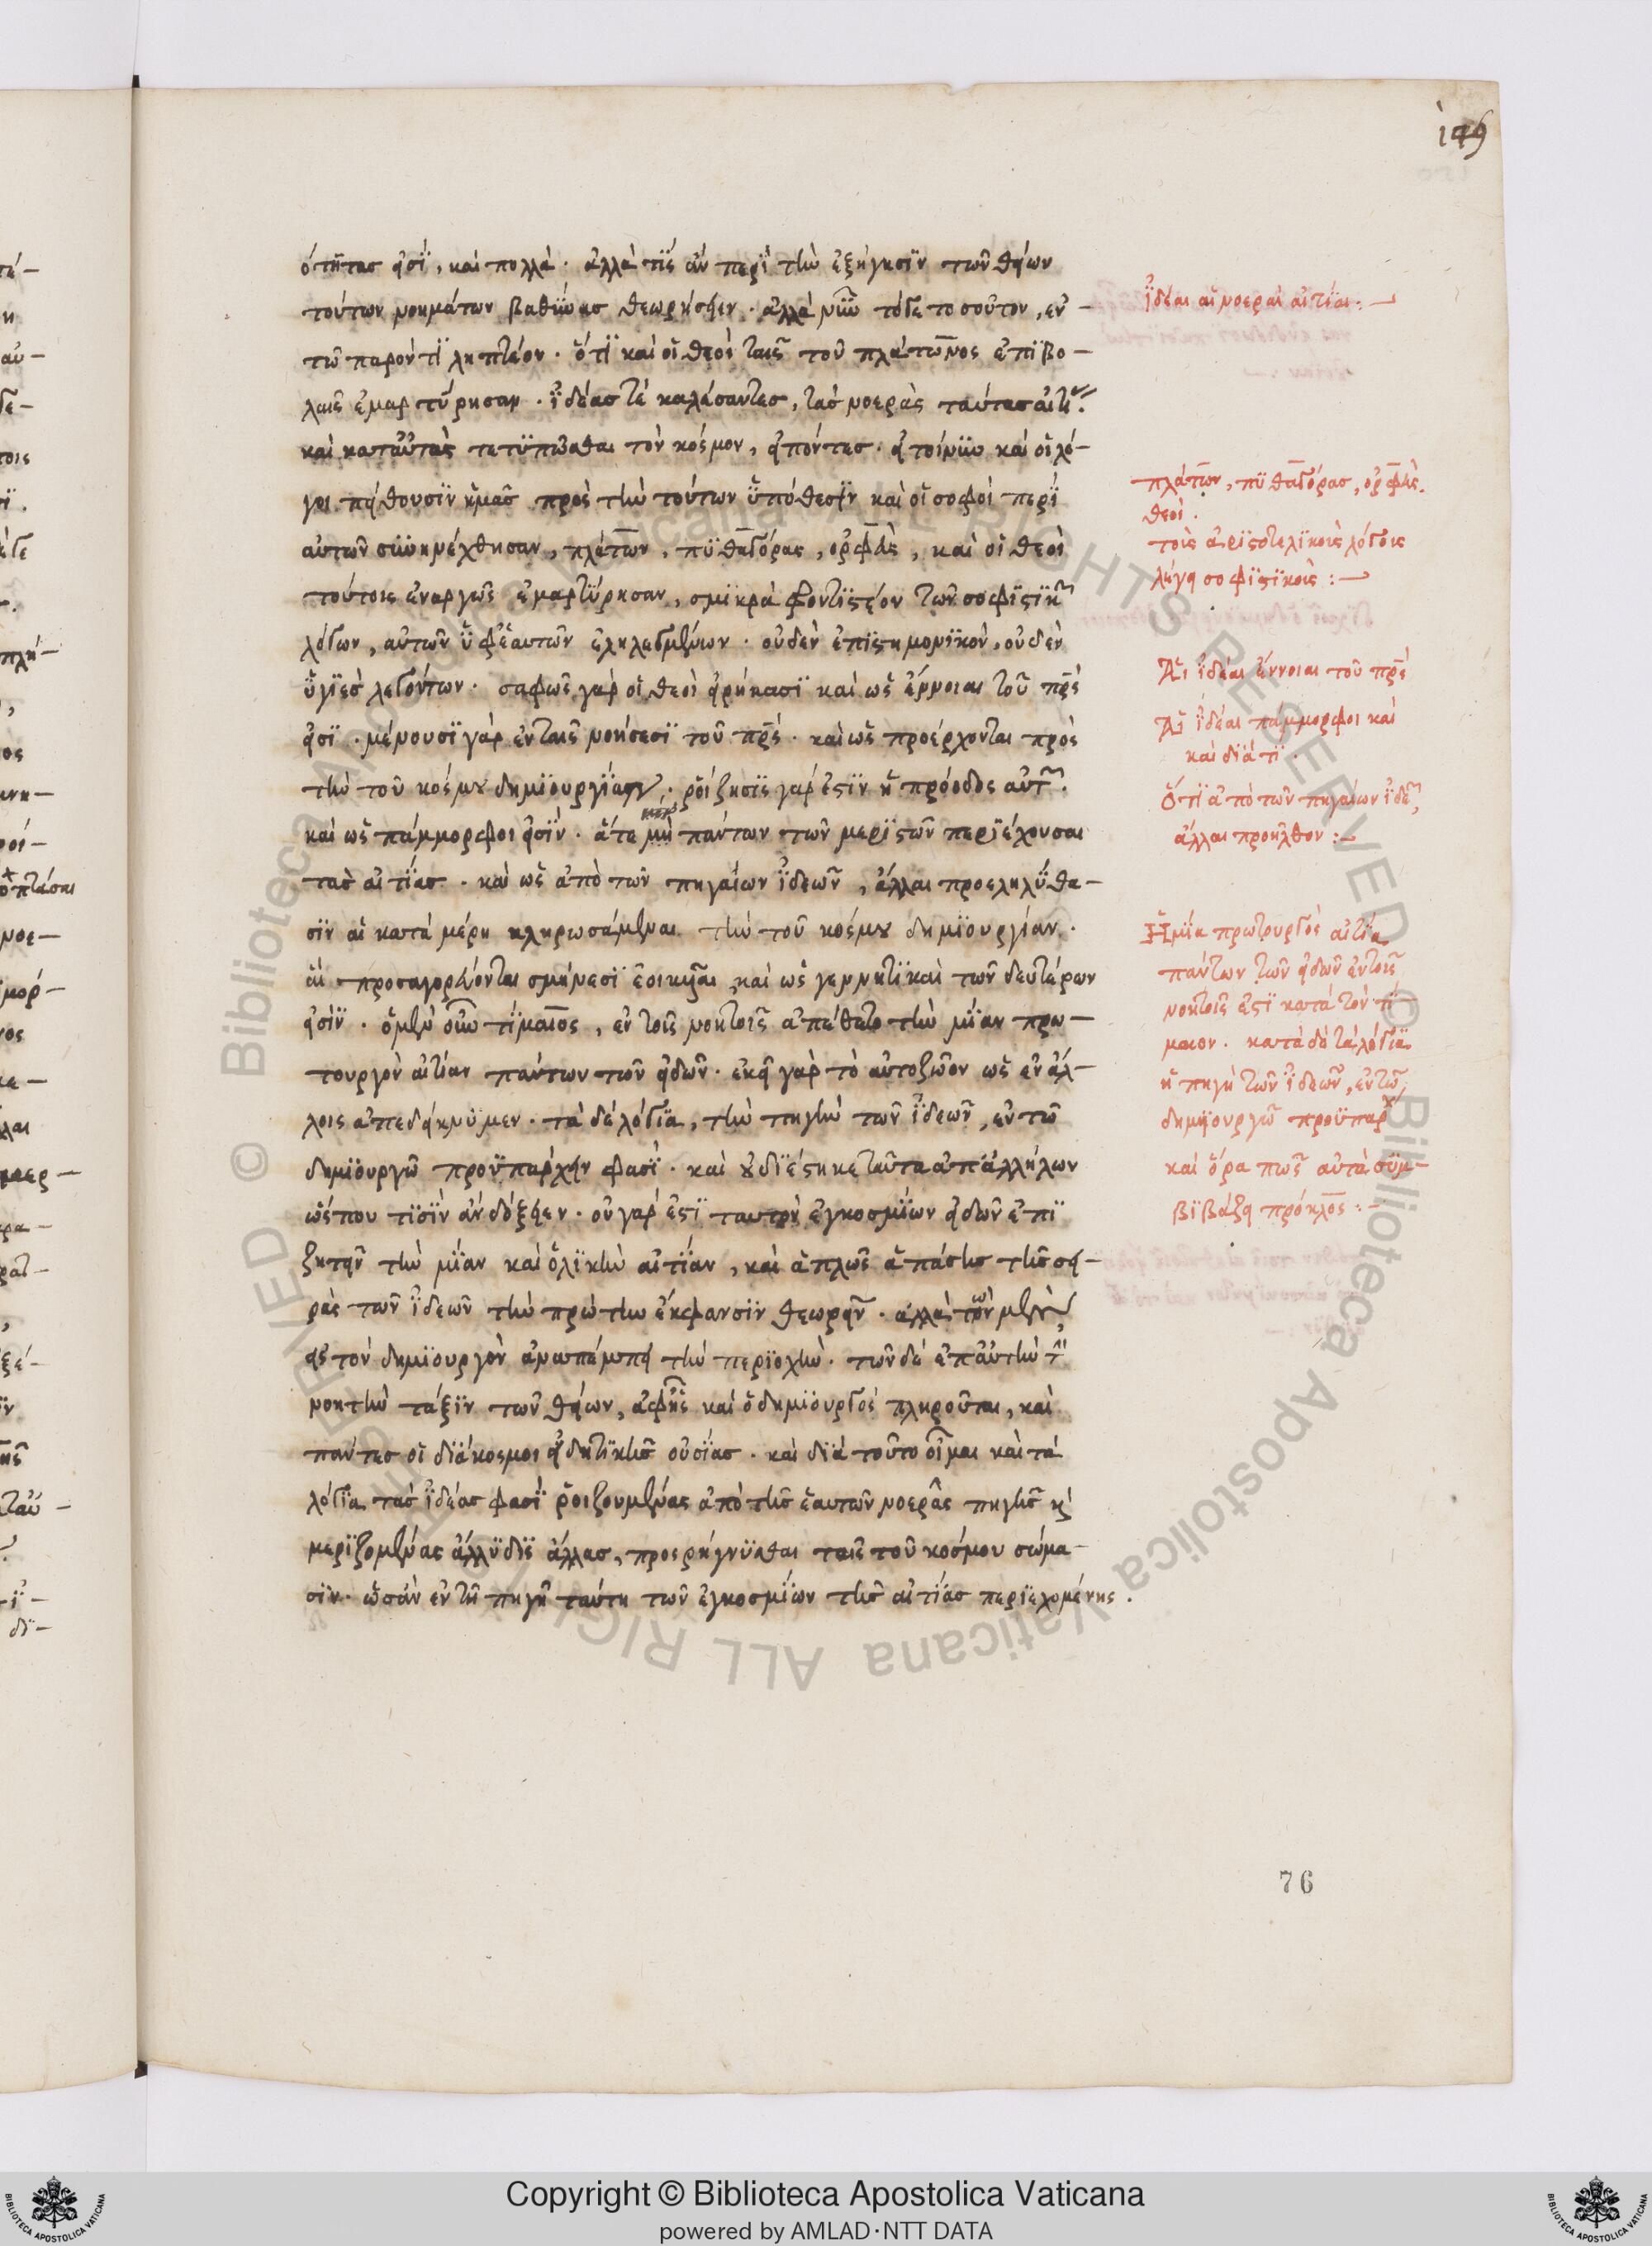 149
ότητας εἰσὶ, καὶ πολλὰ. ἀλλὰ τίς ἂν περὶ τὴν ἐξήγησιν τῶν θείων
τούτων νοημάτων βαθύνας θεωρήσειεν. ἀλλὰ νῦν τόδε τοσοῦτον, ἐν
τῶ παρόντι ληπτέον. ὅτι καὶ οἱ θεοὶ ταῖς τοῦ πλάτωνος ἐπιβο-
λαῖς ἐμαρτύρησαν. ἰδέας τὲ καλέσαντες, τὰς νοερὰς ταύτας αἰτι
καὶ κατ' αὐτὰς τετυπῶσθαι τὸν κόσμον, εἰπόντες. εἰ τοίνυν καὶ οἱ λό-
γοι πείθουσιν ἡμᾶς πρὸς τὴν τούτων ὑπόθεσιν καὶ οἱ σοφοὶ περὶ
αὐτῶν συνηνέχθησαν, πλάτων, πυθαγόρας, ὀρφεὺς, καὶ οἱ θεοὶ
τούτοις ἐναργῶς ἐμαρτύρησαν, σμικρὰ φροντιστέον τῶν σοφιστικῶν
λόγων, αὐτῶν ὑφ' ἑαυτῶν ἐληλεγμένων. οὐδὲν ἐπιστημονικὸν, οὐδὲν
ὑγιὲς λεγόντων. σαφῶς γὰρ οἱ θεοὶ εἰρήκασι καὶ ὡς ἔννοιαι τοῦ πρς
εἰσί. μένουσι γὰρ ἐν ταῖς νοήσεσι τοῦ πρς. καὶ ὡς προέρχονται πρὸς
τὴν τοῦ κόσμου δημιουργίαν. ῥοίζησις γάρ ἐστιν ἡ πρόοδος αὐτῶν.
καὶ ὡς πάμμορφοι εἰσίν. ἅτε μὴ πάντων τῶν μεριστῶν περιέχουσαι
τὰς αἰτίας. καὶ ὡς ἀπὸ τῶν πηγαίων ἰδεῶν, ἄλλαι προεληλύθα-
σιν αἱ κατὰ μέρη κληρωσάμεναι τὴν τοῦ κόσμου δημιουργίαν.
αἳ προσαγορεύονται σμήνεσι ἐοικυῖαι καὶ ὡς γεννητικαὶ τῶν δευτέρων
εἰσίν. ὁ μὲν οὖν τίμαιος, ἐν τοῖς νοητοῖς ἀπέθετο τὴν μίαν πρω-
τουργὸν αἰτίαν πάντων τῶν εἰδῶν. ἐκεῖ γὰρ τὸ αὐτοζῶον ὡς ἐν ἄλ-
λοις ἀπεδείκνυμεν. τὰ δὲ λόγια, τὴν πηγὴν τῶν ἰδεῶν, ἐν τῶ
δημιουργῶ προϋπάρχειν φασί. καὶ οὐ διέστηκε ταῦτα ἀπ' ἀλλήλων
ὥς που τισὶν ἂν δόξειεν. οὐ γάρ ἐστι ταυτὸν ἐγκοσμίων εἰδῶν ἐπι
ζητεῖν τὴν μίαν καὶ ὁλικὴν αἰτίαν, καὶ ἁπλῶς ἁπάσης τῆς σει-
ρᾶς τῶν ἰδεῶν τὴν πρώτην ἔκφανσιν θεωρεῖν. ἀλλὰ τῶν μὲν
εἰς τὸν δημιουργὸν ἀναπέμπει τὴν περιοχὴν. τῶν δὲ ἐπ' αὐτὴν τὴν
νοητὴν τάξιν τῶν θείων, ἀφ' ἧς καὶ ὁ δημιουργὸς πληροῦται, καὶ
πάντες οἱ διάκοσμοι εἰδητικῆς οὐσίας. καὶ διὰ τοῦτο οἶμαι καὶ τὰ
λόγια τὰς ἰδέας φασὶ ῥοιζουμένας ἀπὸ τῆς ἑαυτῶν νοερᾶς πηγῆς καὶ
μεριζομένας ἄλλυδις ἄλλας, προσρήγνυσθαι τοῖς τοῦ κόσμου σώμα-
σιν. ὡς ἂν ἐν τῆ πηγῆ ταύτη τῶν ἐγκοσμίων τῆς αἰτίας περιεχομένης.
ἰδέαι αἱ νοεραὶ αἰτίαι:—
πλάτων, πυθαγόρας, ὀρφεὺς.
θεοί.
τοὺς ἀριστοτελικοὺς λόγους
λέγει σοφιστικοὺς:—
Αἱ ἰδέαι ἔννοιαι τοῦ πρς
Αἱ ἰδέαι πάμμορφοι καὶ
καὶ διὰ τί.
Ὅτι ἀπὸ τῶν πηγαίων ἰδεῶν,
ἄλλαι προῆλθον:—
Ἡ μία πρωτουργὸς αἰτία
πάντων τῶν εἰδῶν ἐν τοῖς
νοητοῖς ἐστι κατὰ τὸν τί-
μαιον. κατὰ δὲ τὰ λόγια
ἡ πηγὴ τῶν ἰδεῶν, ἐν τῶ
δημιουργῶ προϋπάρχ
καὶ ὅρα πῶς αὐτὰ συμ-
βιβάζει πρόκλος:—
76
© Biblioteca Apostolica Vaticana ALL RIGHTS RESERVED © Biblioteca Apostolica Vaticana ALL RIGHTS RESERVED
Copyright © Biblioteca Apostolica Vaticana
powered by AMLAD·NTT DATA